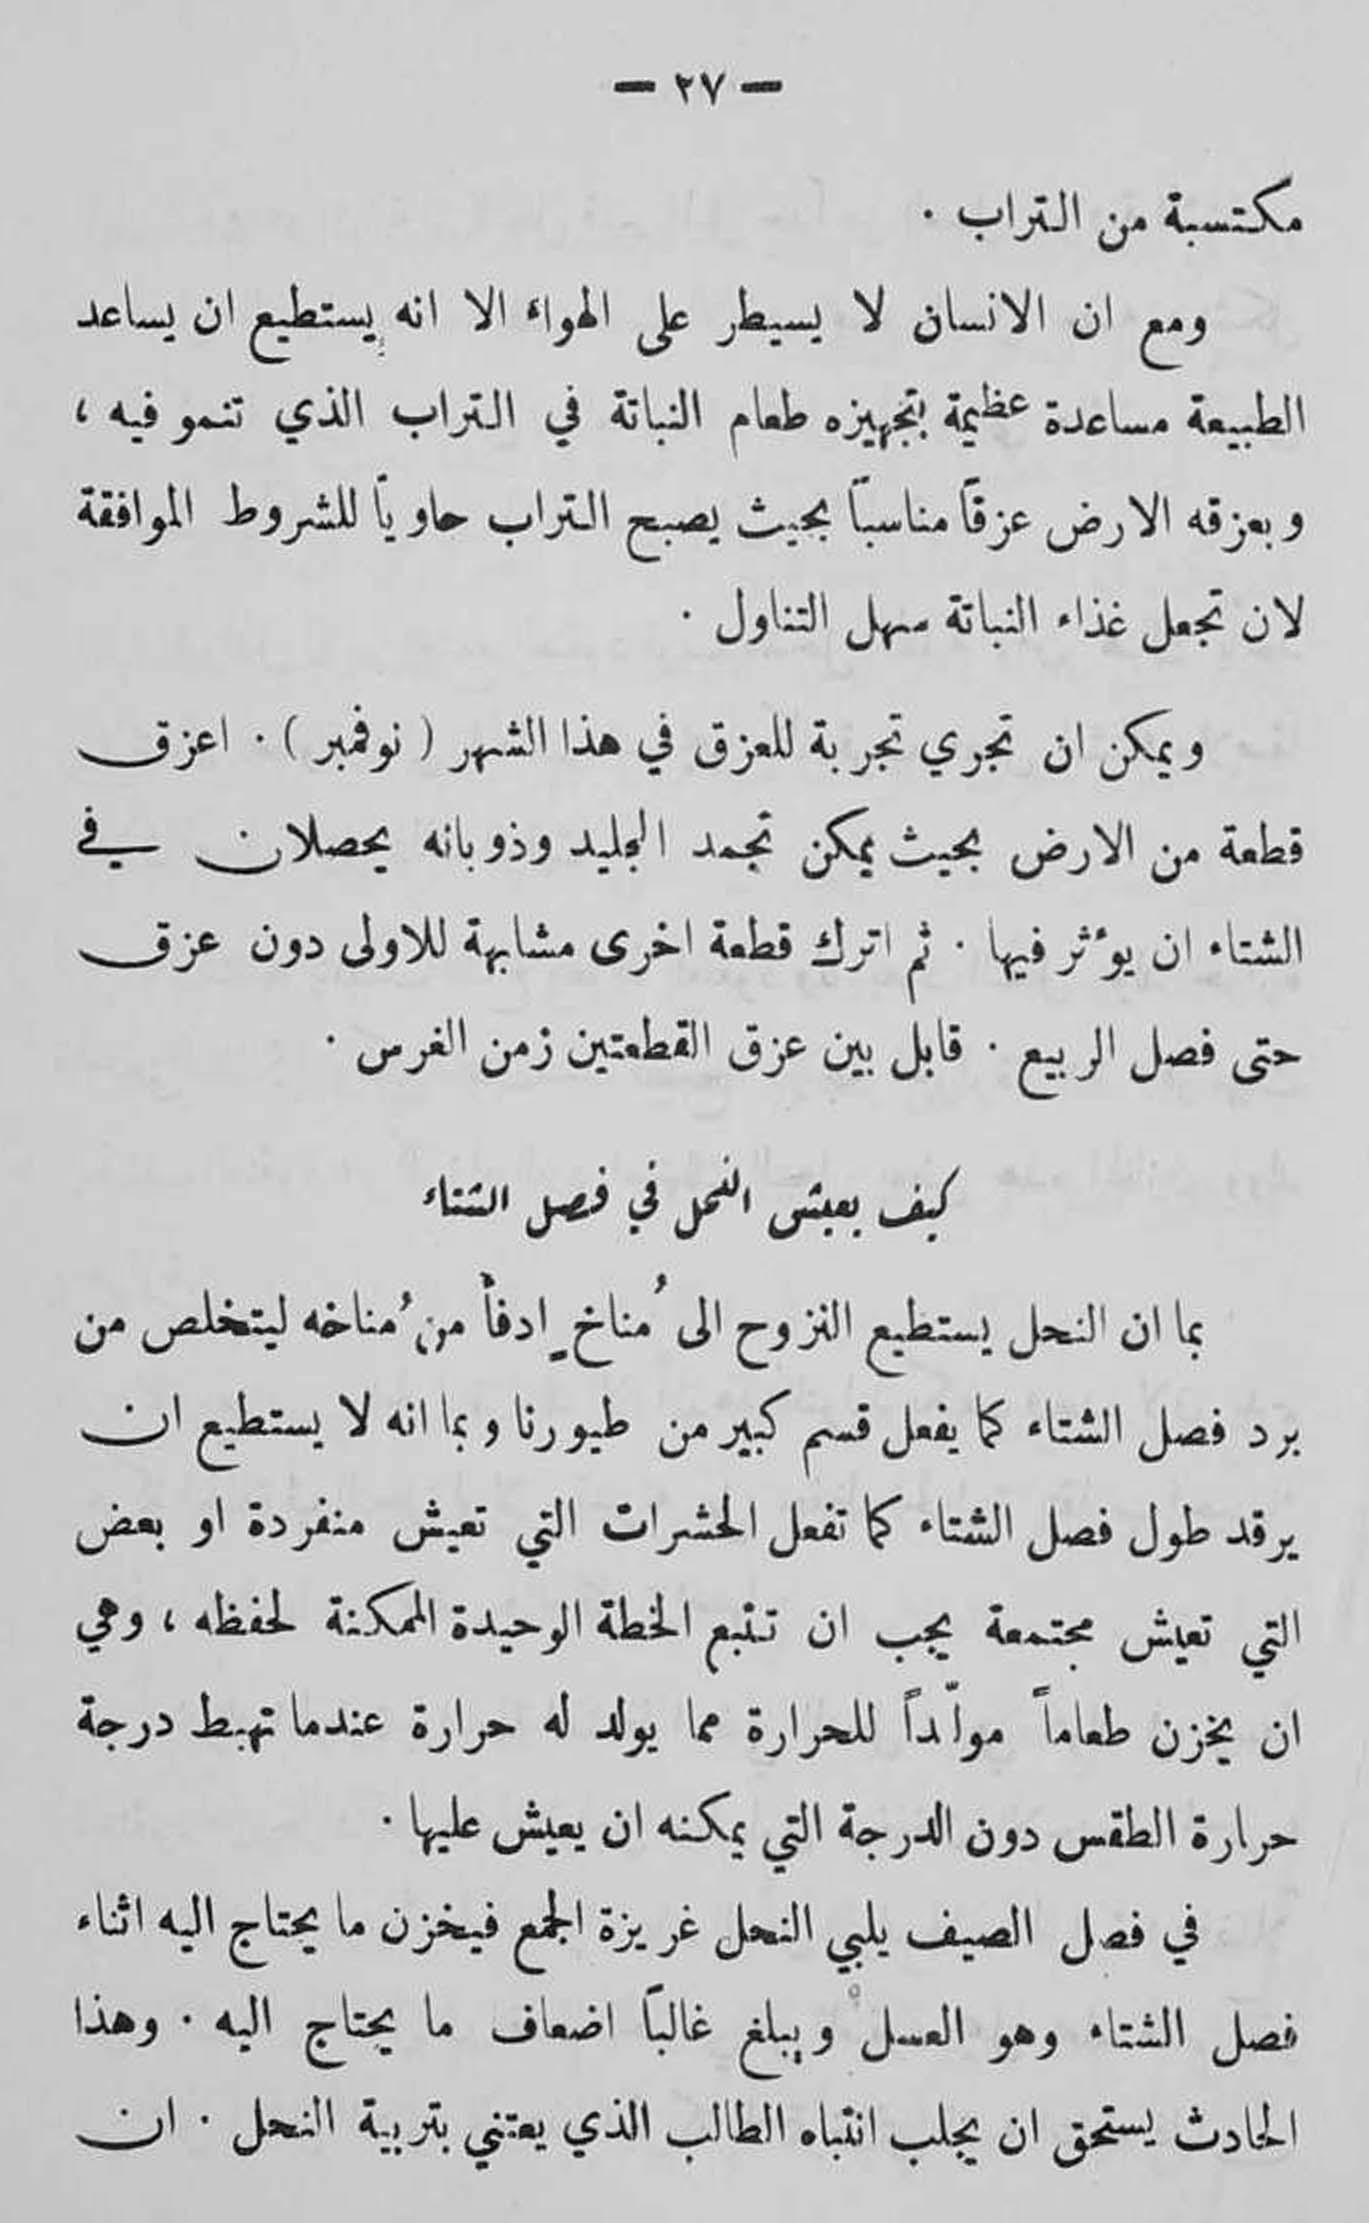 — ٢٧ —
مكتسبة من التراب ٠
ومع ان الانسان لا يسيطر على الهواء الا انه يستطيع ان يساعد
الطبيعة مساعدة عظيمة بتجهيزه طعام النباتة في التراب الذي تنمو فيه ،
وبعزقه الارض عزقاً مناسباً بحيث يصبح التراب حاوياً للشروط الموافقة
لان تجعل غذاء النباتة سهل التناول ٠
ويمكن ان تجري تجربة للعزق في هذا الشهر ( نوفمبر ) ٠ اعزق
قطعة من الارض بحيث يمكن تجمد الجليد وذوبانه يحصلان في
الشتاء ان يؤثر فيها ٠ ثم اترك قطعة اخرى مشابهة للاولى دون عزق
حتى فصل الربيع ٠ قابل بين عزق القطعتين زمن الغرس ٠
كيف يعيش النحل في فصل الشتاء
بما ان النحل يستطيع النزوح الى مُناخٍ ادفأ من مُناخه ليتخلص من
برد فصل الشتاء كما يفعل قسم كبير من طيورنا وبما انه لا يستطيع ان
يرقد طول فصل الشتاء كما تفعل الحشرات التي تعيش منفردة او بعض
التي تعيش مجتمعة يجب ان تتبع الخطة الوحيدة الممكنة لحفظه ، وهي
ان يخزن طعاماً مولّداً للحرارة مما يولد له حرارة عندما تهبط درجة
حرارة الطقس دون الدرجة التي يمكنه ان يعيش عليها ٠
في فصل الصيف يلبي النحل غريزة الجمع فيخزن ما يحتاج اليه اثناء
فصل الشتاء وهو العسل ويبلغ غالباً اضعاف ما يحتاج اليه ٠ وهذا
الحادث يستحق ان يجلب انتباه الطالب الذي يعتني بتربية النحل ٠ ان